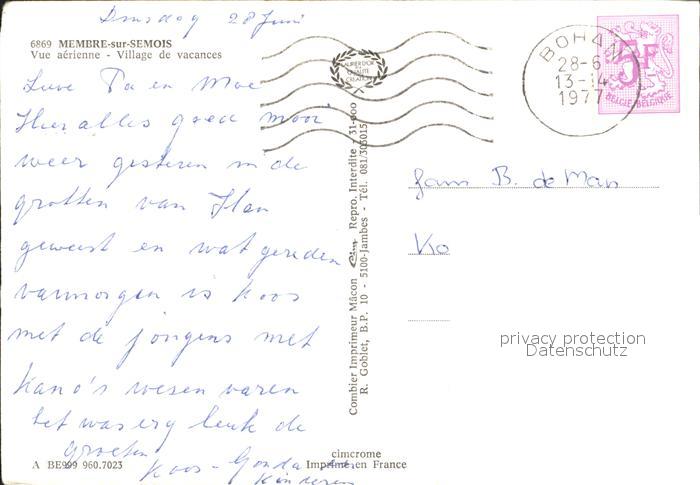 Dinsdag 28 Juni
6869 MEMBRE-sur-SEMOIS
Vue aérienne - Village de vacances
Lieve Pa en Moe
Hier alles goed mooi
weer gisteren in de
grotten van Han
geweest en wat gereden
vanmorgen is Koos
met de jongens met
kano's wesen varen
het was erg leuk de
groeten
Koos - Gonda en
Kinderen
A BE999 960.7023
cimcrome
Imprimé en France
Combier Imprimeur Mâcon Cim Repro. Interdite - 31-000
R. Goblet, B.P. 10 - 5100-Jambes - Tél. 081/305015
BOHAN
28-6
13-14
1977
5F
BELGIE-BELGIQUE
Fam B. de Man
privacy protection
Datenschutz